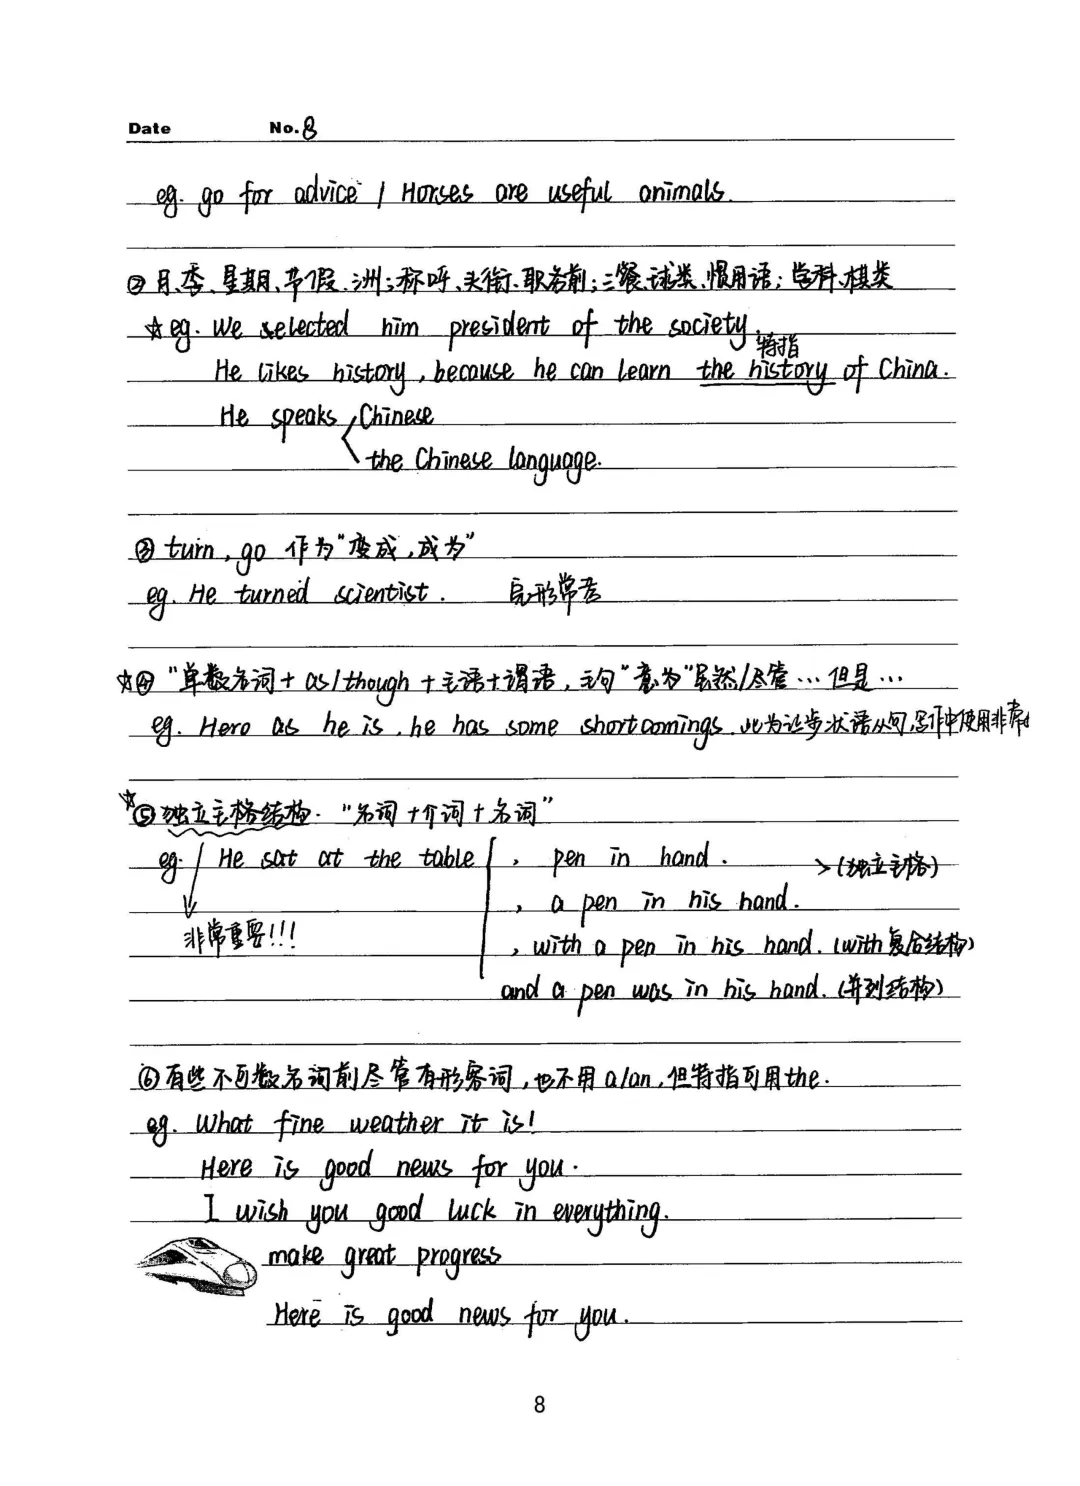 Date No.8
eg. go for advice / Horses are useful animals.
② 月、季、星期、节假、洲;称呼、头衔、职务前;三餐、球类、惯用语;学科、棋类
☆eg. We selected him president of the society.
特指
He likes history, because he can learn the history of China.
He speaks Chinese
the Chinese language.
③ turn, go 作为"变成,成为"
eg. He turned scientist. 完形常考
☆④ "单数名词+as/though+主语+谓语,主句"意为"虽然/尽管…但是…
eg. Hero as he is, he has some shortcomings. 此为让步状语从句,写作中使用非常
☆⑤独立主格结构. "名词+介词+名词"
eg. He sat at the table , pen in hand. >(独立主格)
, a pen in his hand.
非常重要!!!
, with a pen in his hand. (with复合结构)
and a pen was in his hand. (并列结构)
⑥有些不可数名词前尽管有形容词,也不用a/an,但特指可用the.
eg. What fine weather it is!
Here is good news for you.
I wish you good luck in everything.
make great progress
Here is good news for you.
8